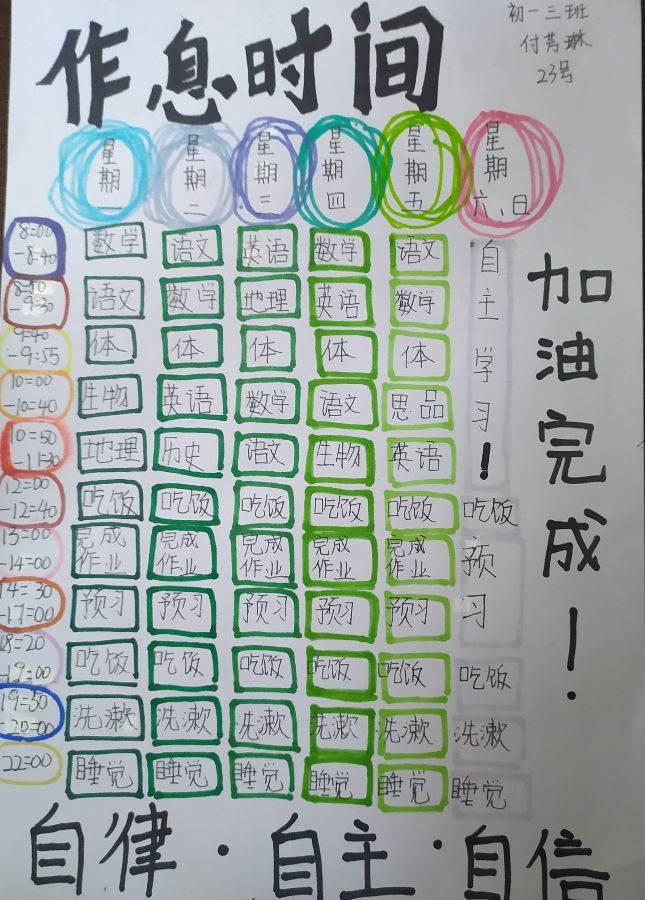 作息时间
初一三班
付芎琳
23号
星期一 星期二 星期三 星期四 星期五 星期六、日
8:00-8:40 数学 语文 英语 数学 语文 自主学习!
语文 数学 地理 英语 数学
9:40-9:55 体 体 体 体 体
10:00-10:40 生物 英语 数学 语文 思品
10:50-11:30 地理 历史 语文 生物 英语
12:00-12:40 吃饭 吃饭 吃饭 吃饭 吃饭 吃饭
13:00-14:00 完成作业 完成作业 完成作业 完成作业 完成作业 预习
14:30-17:00 预习 预习 预习 预习 预习
18:20-19:00 吃饭 吃饭 吃饭 吃饭 吃饭 吃饭
19:50-20:00 洗漱 洗漱 洗漱 洗漱 洗漱 洗漱
22:00 睡觉 睡觉 睡觉 睡觉 睡觉 睡觉
加油完成!
自律·自主·自信